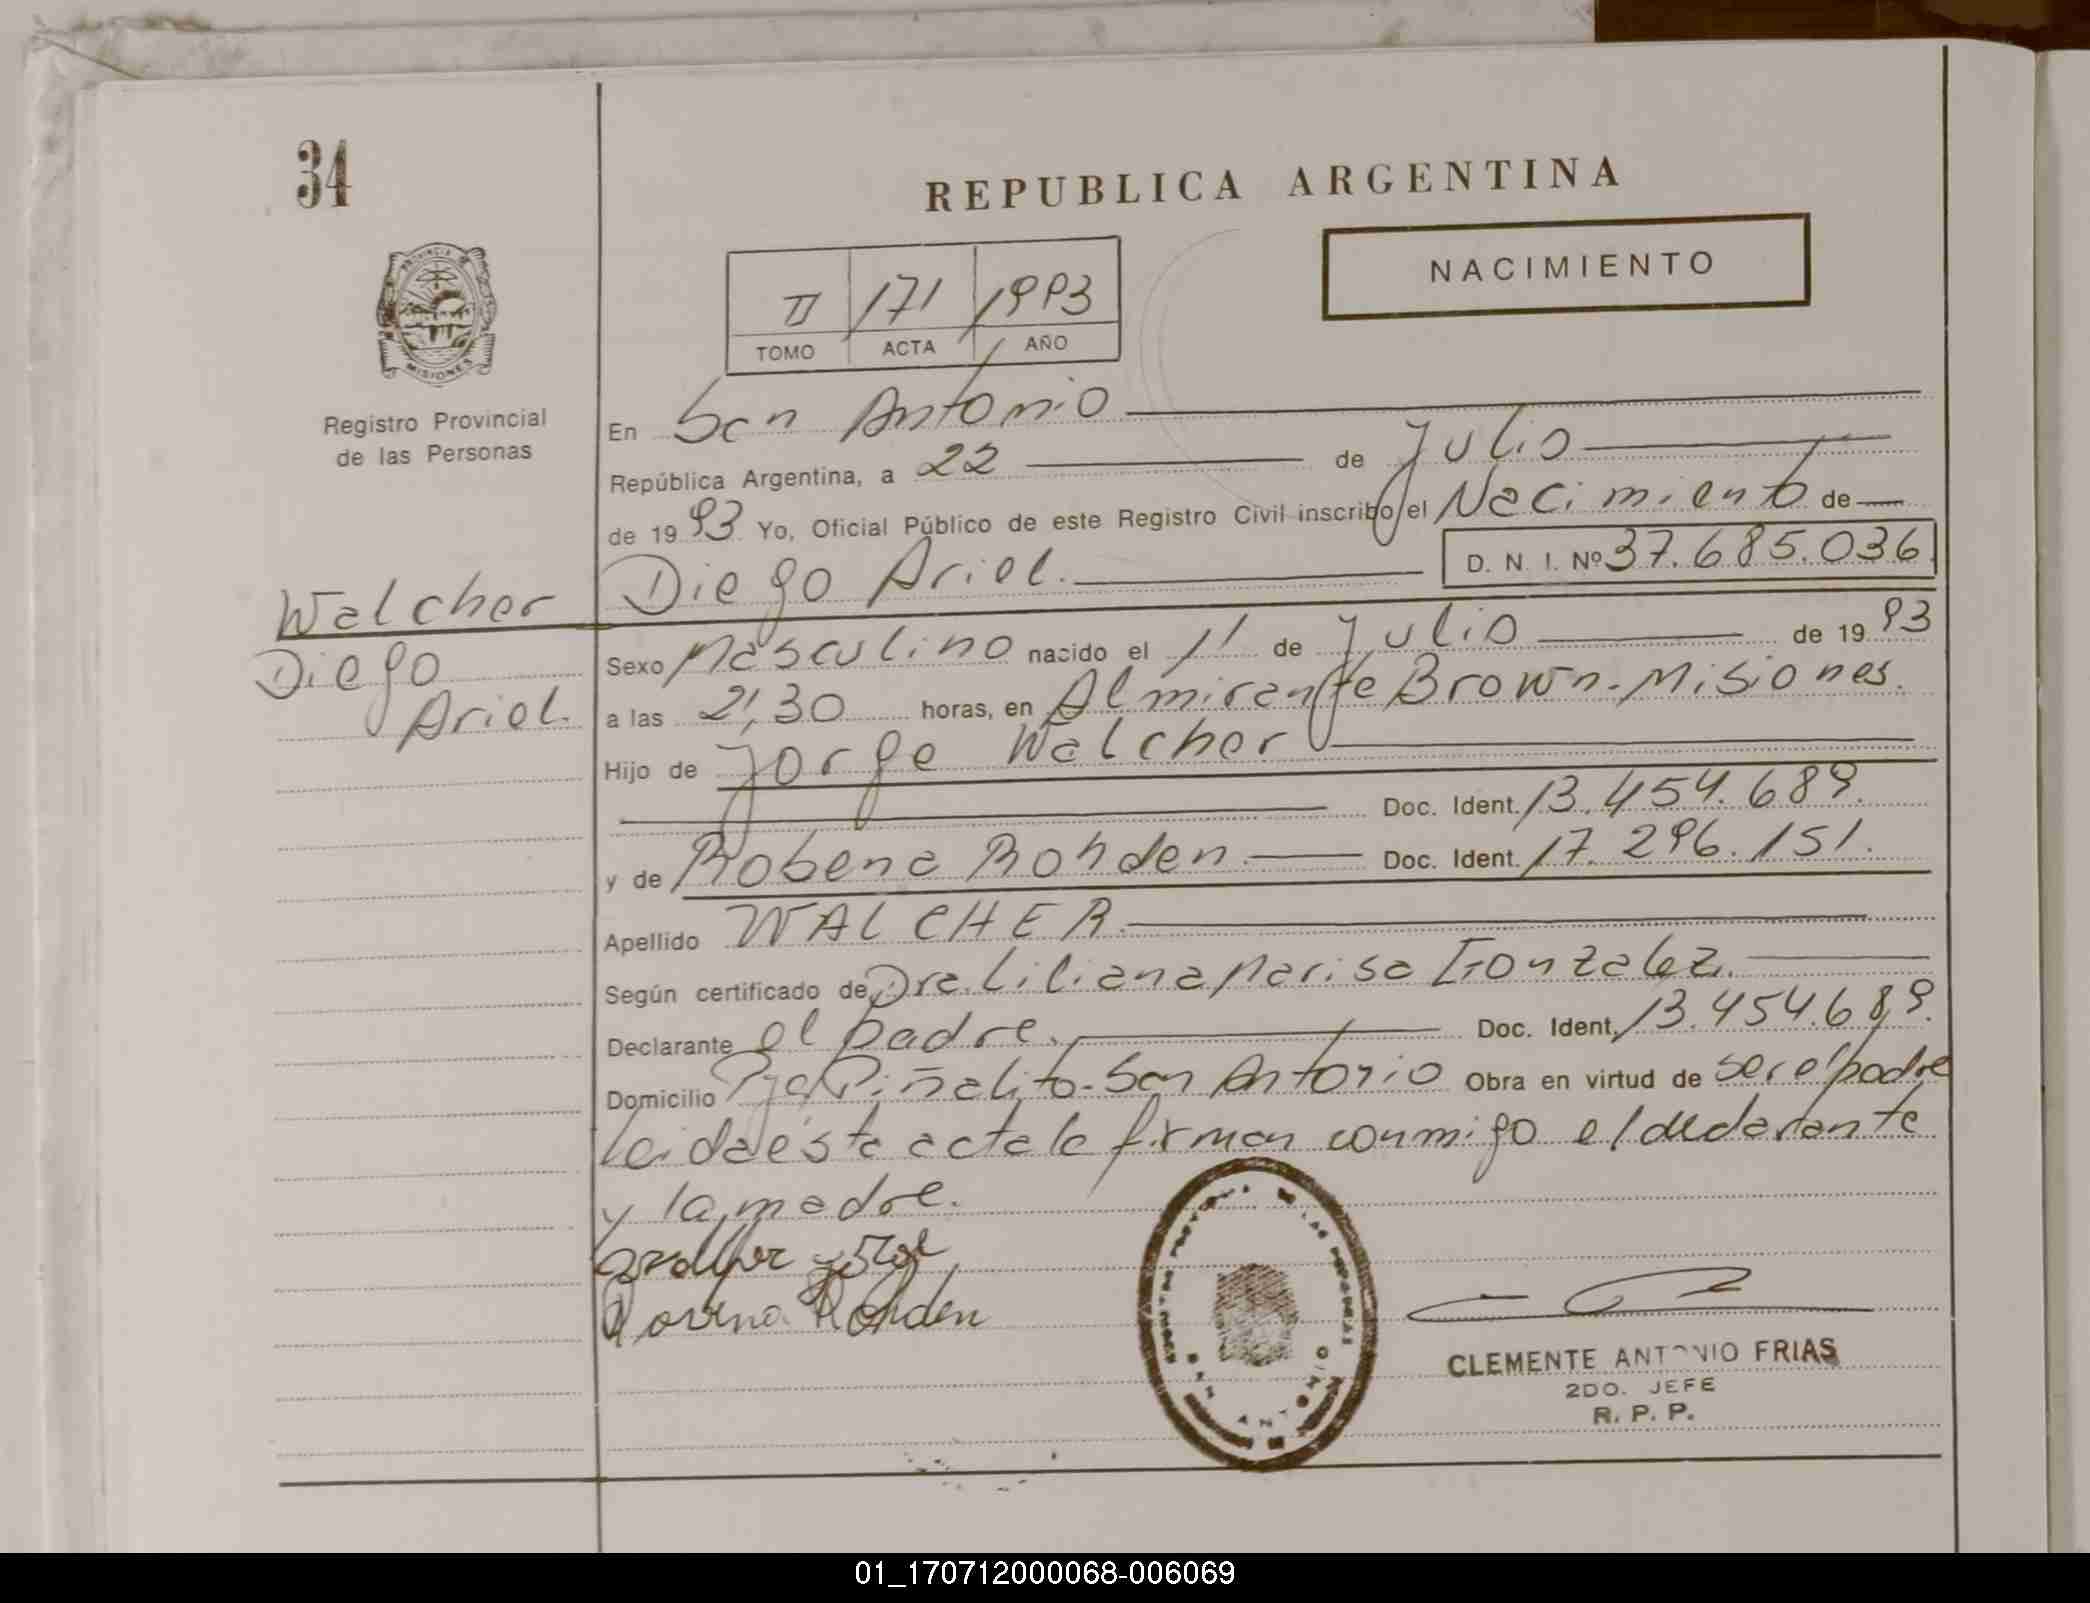 34
REPUBLICA ARGENTINA
NACIMIENTO
II 171 1993
TOMO ACTA AÑO
PROVINCIA DE
MISIONES
Registro Provincial
de las Personas
En San Antonio
República Argentina, a 22 de Julio
de 1993 Yo, Oficial Público de este Registro Civil inscribo el Nacimiento de
Diego Ariel. D. N. I. Nº 37.685.036.
Walcher
Diego
Ariel.
Sexo Masculino nacido el 11 de Julio de 1993
a las 21,30 horas, en Almirante Brown-Misiones.
Hijo de Jorge Walcher
Doc. Ident. 13.454.689.
y de Robena Rohden. Doc. Ident. 17.296.151.
Apellido WALCHER.
Según certificado de Dra. Liliana Marisa Gonzalez.
Declarante el padre. Doc. Ident. 13.454.689.
Domicilio Pje Piñalito-San Antonio Obra en virtud de ser el padre
Leida ésta acta la firman conmigo el declarante
y la madre.
Rohden
SAN ANTONIO
CLEMENTE ANTONIO FRIAS
2DO. JEFE
R. P. P.
01_170712000068-006069